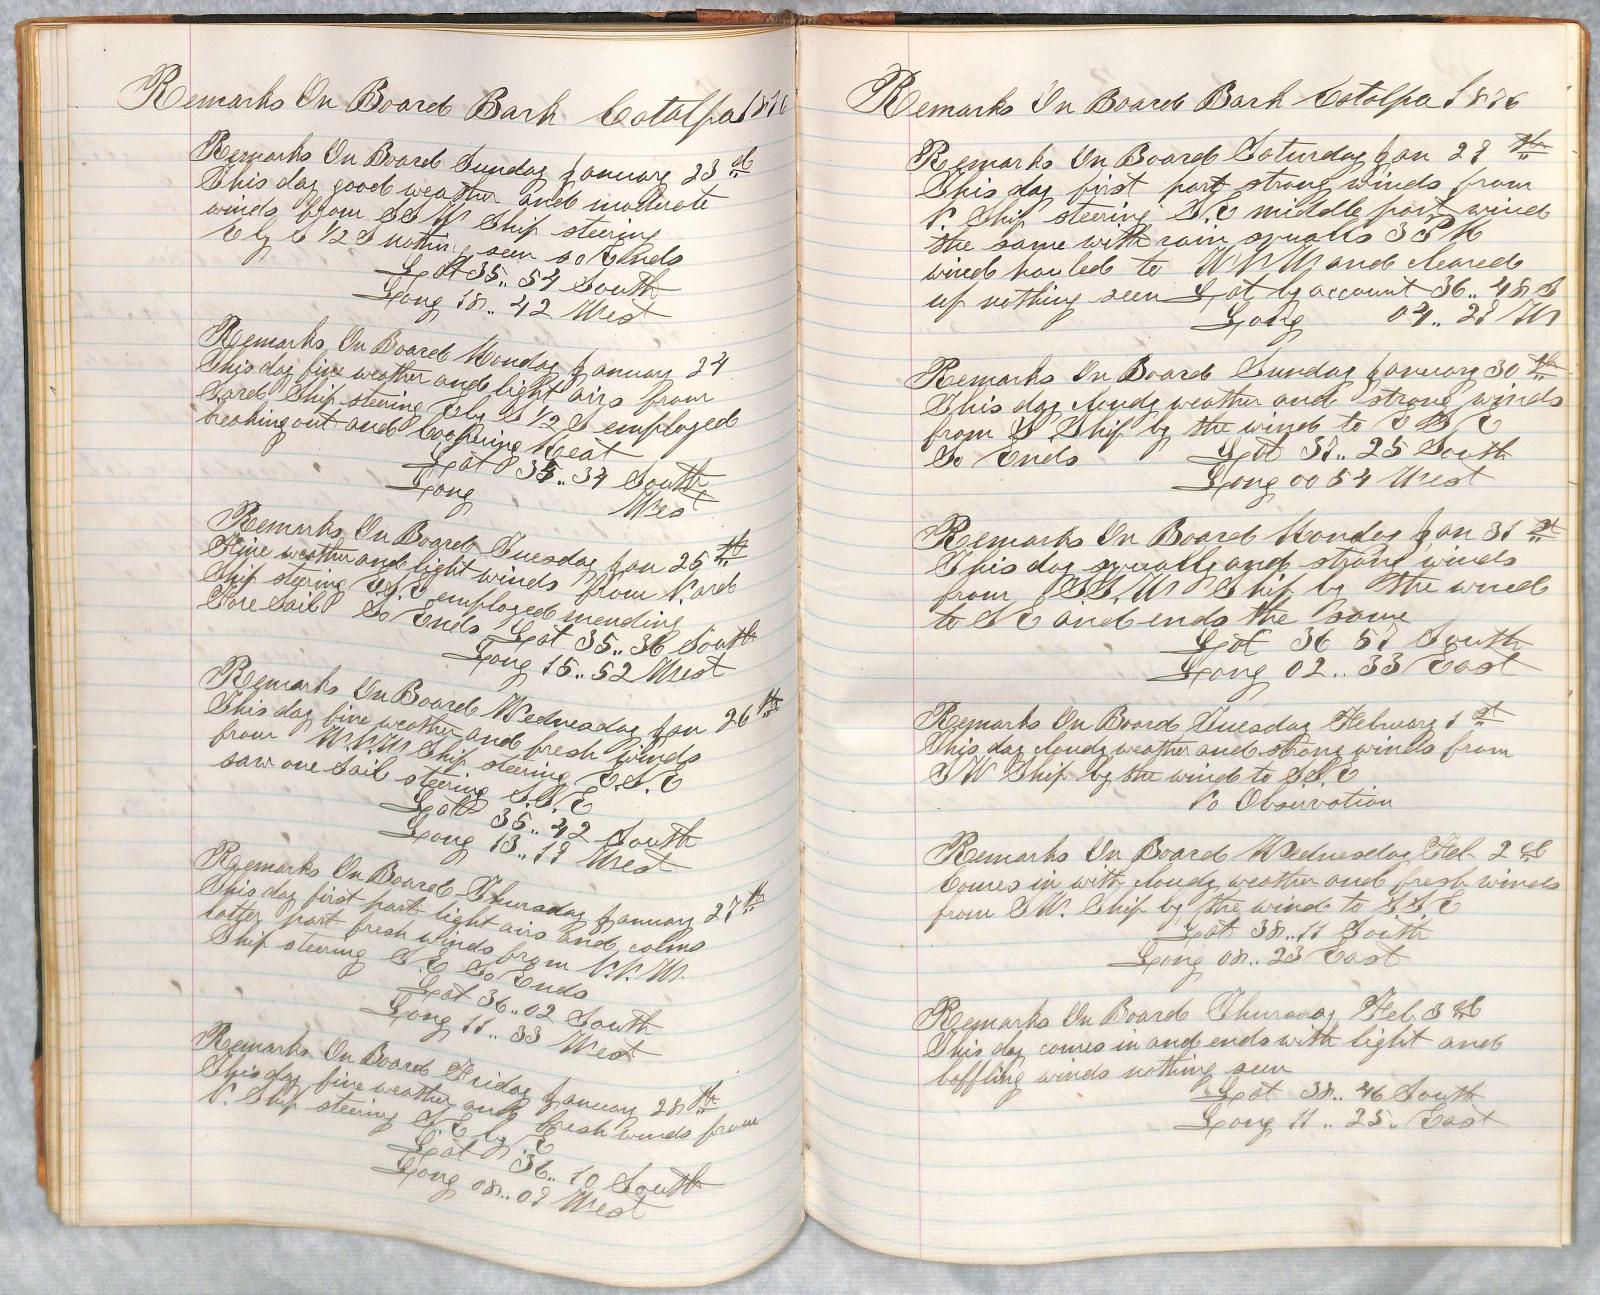 Remarks On Board Bark Catalpa 1876
Remarks On Board Sunday January 23rd
This day good weather and moderate
winds from SSW Ship steering
E by S 1/2 S nothing seen so Ends
Lat 35.. 54 South
Long 18.. 42 West
Remarks On Board Monday January 24
This day fine weather and light airs from
Sard Ship steering E by S 1/2 S employed
breaking out and Coopering Meat
Lat 35.. 34 South
Long West
Remarks On Board Tuesday Jan 25th
Fine weather and light winds from N.ard
Ship steering ESE employed mending
Fore Sail So Ends Lat 35.. 36 South
Long 15.. 52 West
Remarks On Board Wednesday Jan 26th
This day fine weather and fresh winds
from W.N.W Ship steering E.S.E
saw one Sail steering S.S.E
Lat 35.. 42 South
Long 13.. 19 West
Remarks On Board Thursday January 27th
This day first part light airs and calms
latter part fresh winds from N.N.W.
Ship steering S.E So Ends
Lat 36.. 02 South
Long 11.. 33 West
Remarks On Board Friday January 28th
This day fine weather and fresh winds from
N. Ship steering S.E by E
Lat 36.. 10 South
Long 08.. 09 West
Remarks On Board Bark Catalpa 1876
Remarks On Board Saturday Jan 29th
This day first part strong winds from
N. Ship steering S.E middle part wind
the same with rain squalls 3 P M
wind hauled to WNW and cleared
up nothing seen Lat by account 36.. 48 S
Long 04.. 29 W
Remarks On Board Sunday January 30th
This day cloudy weather and strong winds
from S. Ship by the wind to E S E
So Ends Lat 37.. 25 South
Long 00 54 West
Remarks On Board Monday Jan 31st
This day squally and strong winds
from SS.W Ship by the wind
to S E and ends the same
Lat 36 57 South
Long 02.. 33 East
Remarks On Board Tuesday February 1st
This day cloudy weather and strong winds from
SW Ship by the wind to S.S.E
No Observation
Remarks On Board Wednesday Feb. 2ed
Comes in with cloudy weather and fresh winds
from SW. Ship by the wind to S.S.E
Lat 38.. 11 South
Long 08.. 23 East
Remarks On Board Thursday Feb 3ed
This day comes in and ends with light and
baffling winds nothing seen
Lat 38.. 46 South
Long 11.. 25.. East